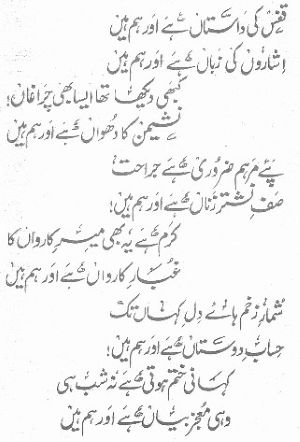 قفس کی داستاں ہے اور ہم ہیں
اشاروں کی زباں ہے اور ہم ہیں
کبھی دیکھا تھا ایسا بھی چراغاں!
نشیمن کا دھواں ہے اور ہم ہیں
پئے مرہم ضروری ہے جراحت
صفِ نشتر زناں ہے اور ہم ہیں!
کرم ہے یہ بھی میرِ کارواں کا
غبارِ کارواں ہے اور ہم ہیں
شمارِ زخم ہائے دل کہاں تک
حسابِ دوستاں ہے اور ہم ہیں!
کہانی ختم ہوتی ہے نہ شب ہی
وہی معجز بیاں ہے اور ہم ہیں